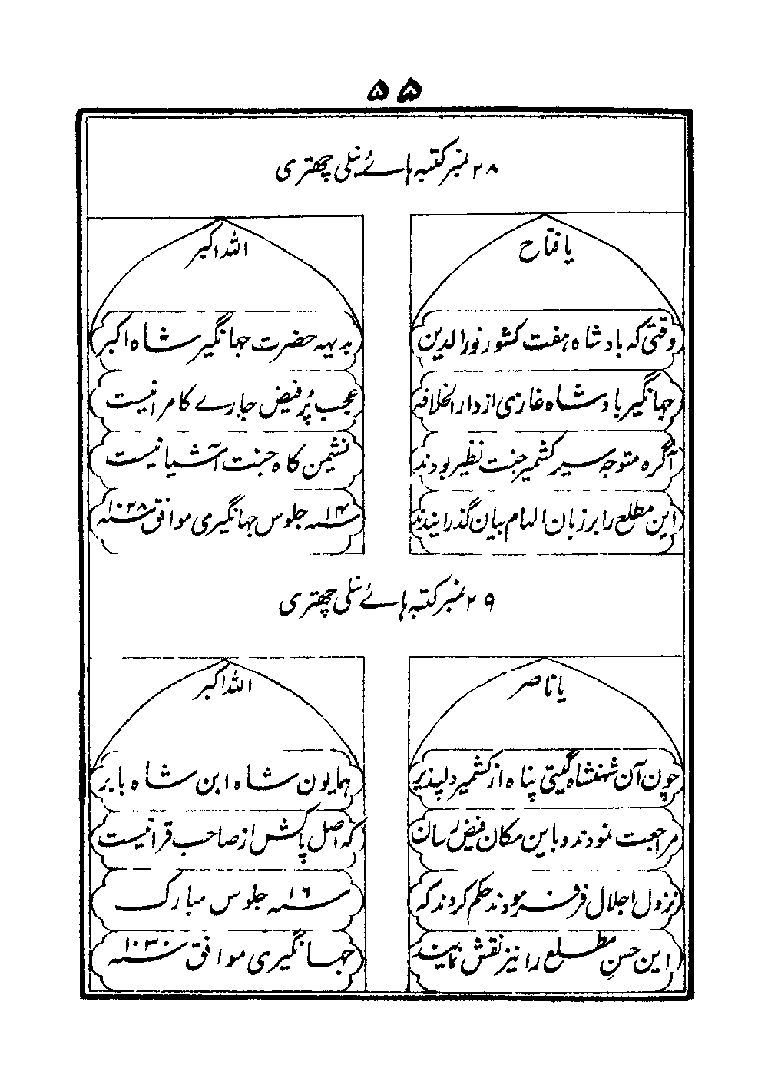 ۵۵
۲۸ نمبر کتبہ ہائے نیلی چھتری
یا فتاح
وقتی کہ بادشاہ ہفت کشور نورالدین
جہانگیر بادشاہ غازی از دارالخلافۃ
آگرہ متوجہ سیر کشمیر جنت نظیر بودند
این مطلع را بر زبان الہام بیان گذرانیدند
اللہ اکبر
بدیہہ حضرت جہانگیر شاہ اکبر
عجب پُر فیض جاے کامرانیست
نشیمن گاہ جنت آشیانیست
سنہ ۱۴ جلوس جہانگیری موافق سنہ ۱۰۲۸
۲۹ نمبر کتبہ ہائے نیلی چھتری
یا ناصر
چون آن شہنشاہ گیتی پناہ از کشمیر دلپذیر
مراجعت نمودند و باین مکان فیض رسان
نزول اجلال فرمودند حکم کردند کہ
این حسن مطلع را نیز نقش نمایند
اللہ اکبر
ہمایون شاہ ابن شاہ بابر
کہ اصل پاکش از صاحب قرانیست
سنہ ۱۶ جلوس مبارک
جہانگیری موافق سنہ ۱۰۳۰